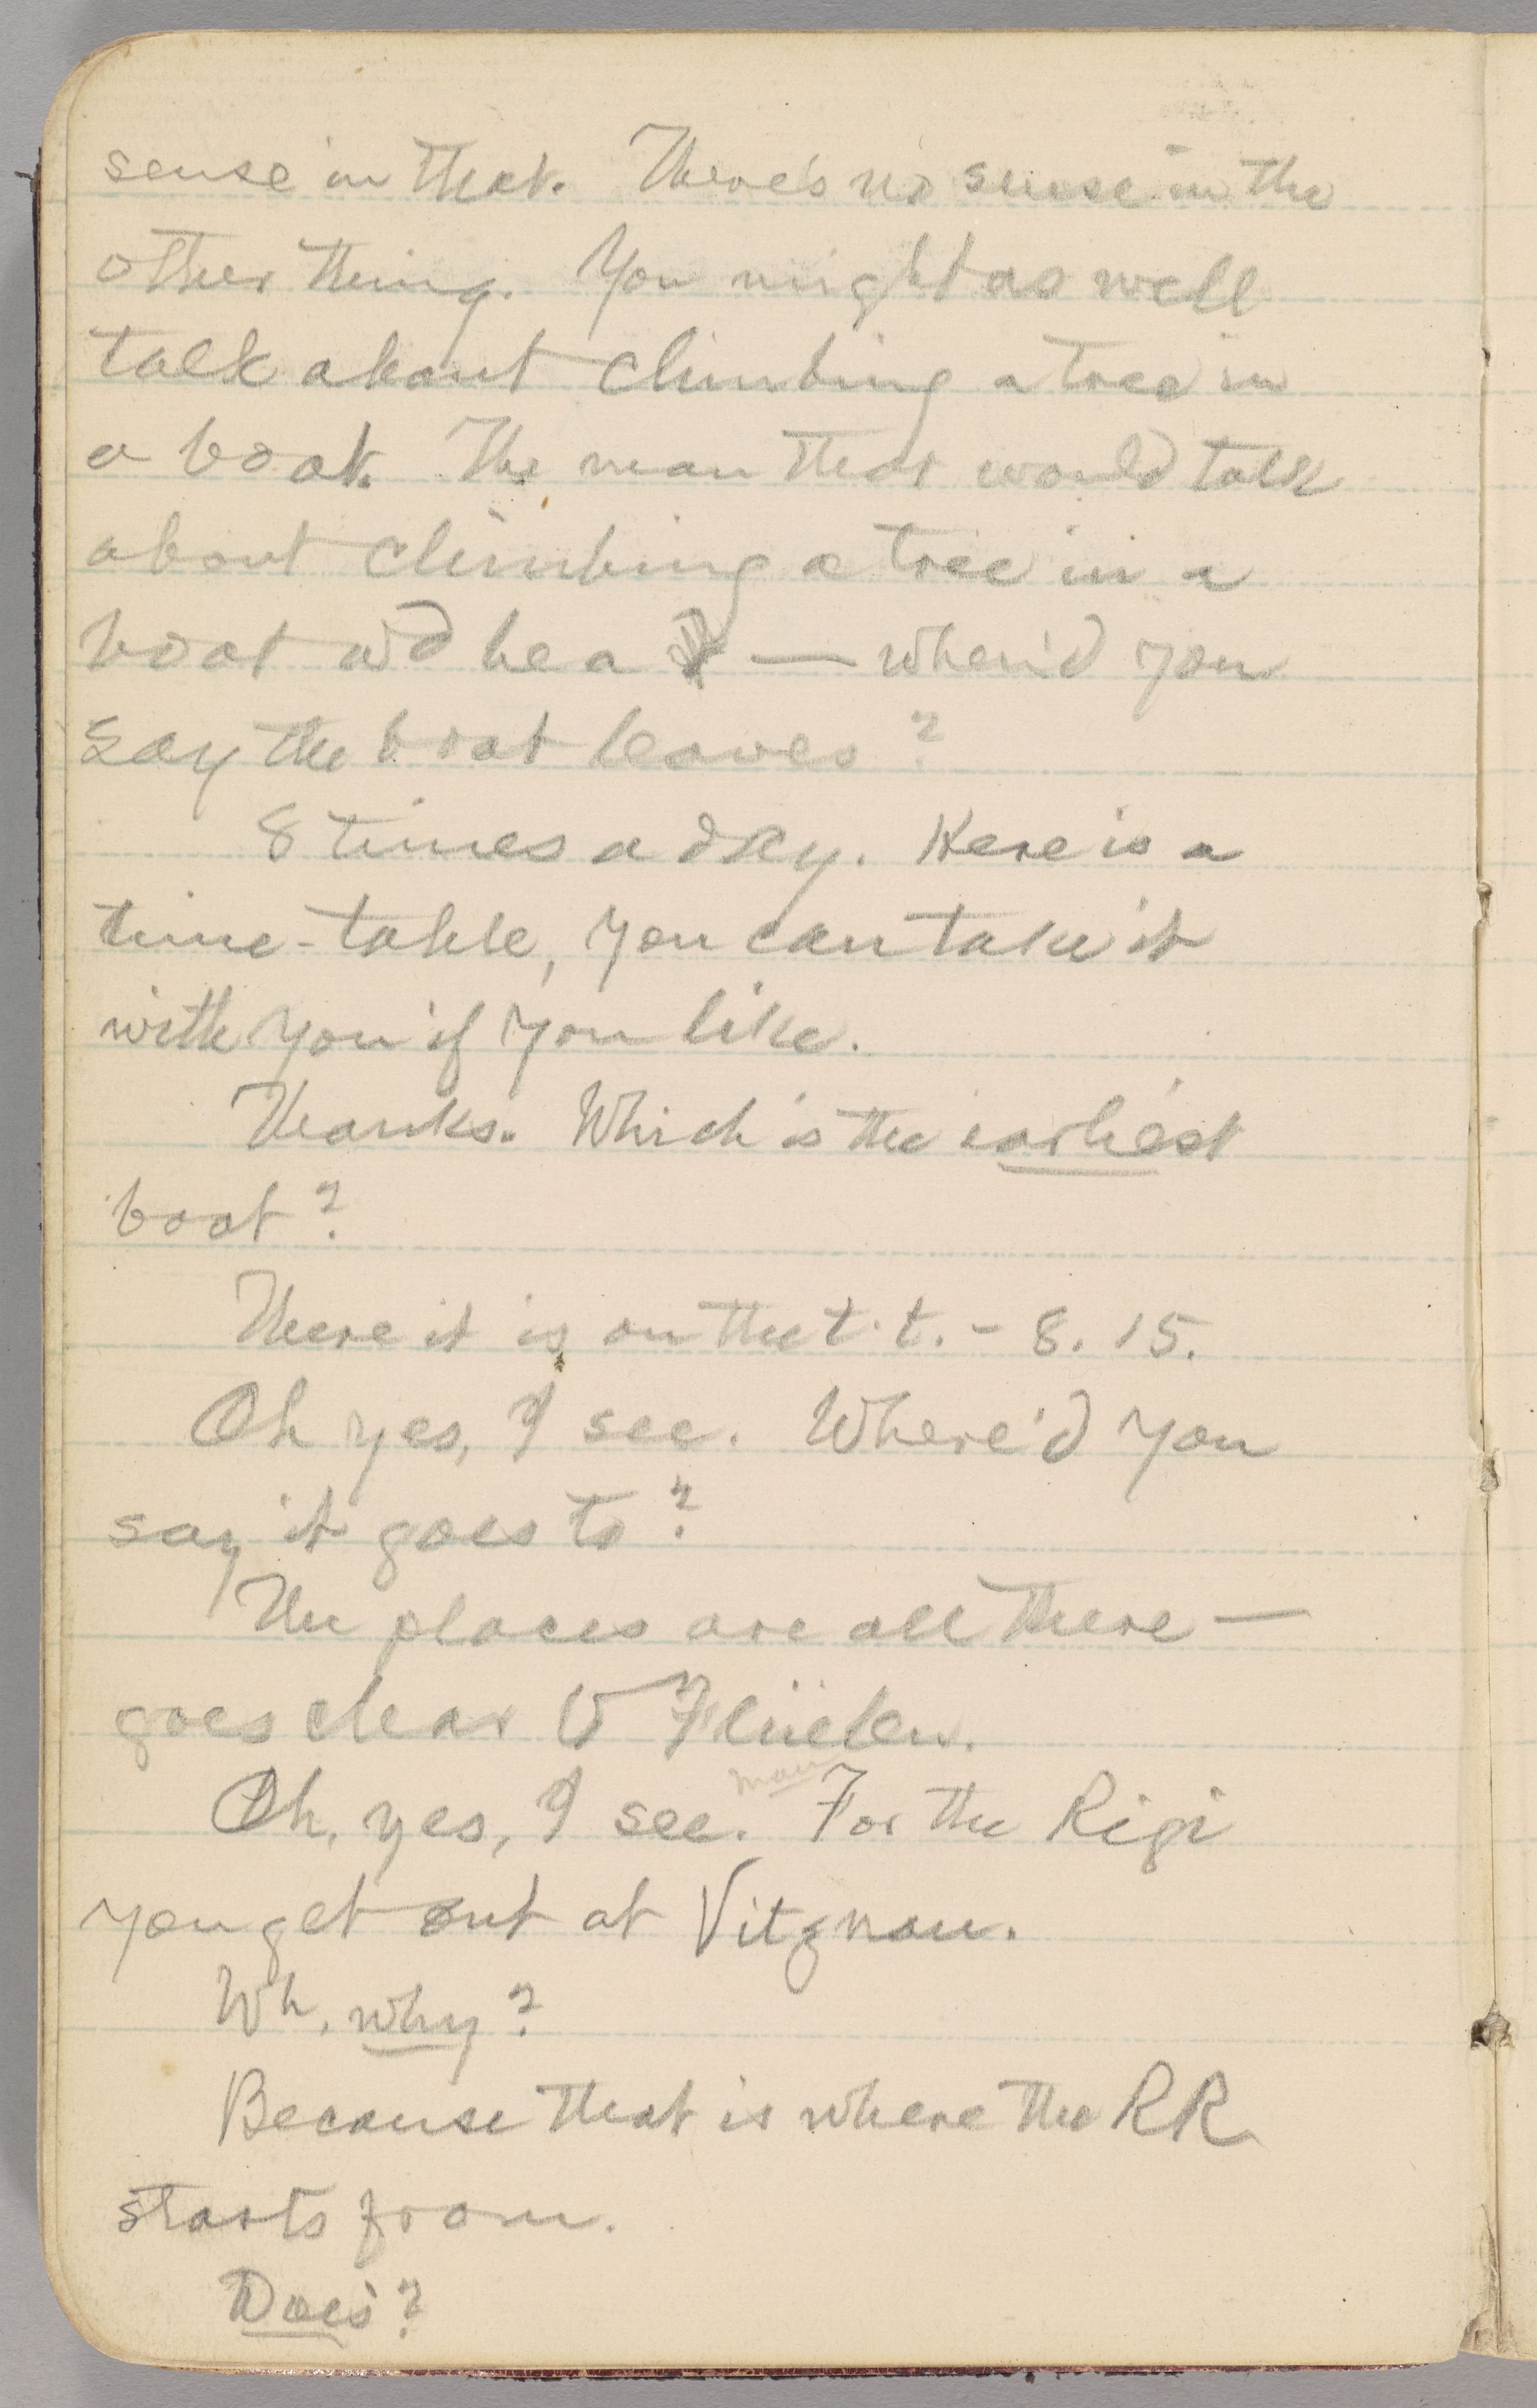 sense in that. There's no sense in the
other thing. You might as well
talk about climbing a tree in
a boat. The man that would talk
about climbing a tree in a
boat w'd be a — when'd you
say the boat leaves?
8 times a day. Here is a
time-table, you can take it
with you if you like.
Thanks. Which is the earliest
boat?
There it is on the t.t. – 8.15.
Oh yes, I see. Where'd you
say it goes to?
The places are all there —
goes clear to Flüelen.
man
Oh, yes, I see. For the Rigi
you get out at Vitznau.
Wh, why?
Because that is where the RR
starts from.
Does?